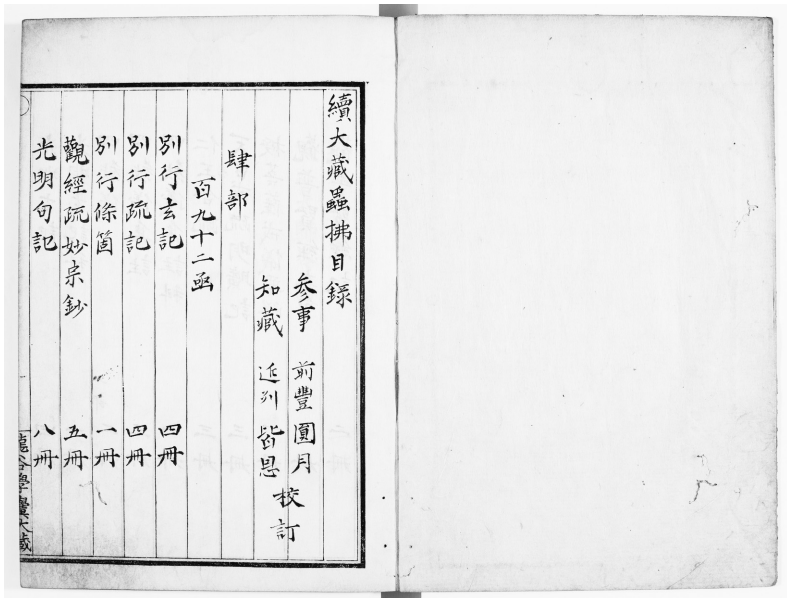 續大藏蟲拂目錄
参事 前豐圓月
知藏 近州 皆恩
校訂
肆部
百九十二凾
別行玄記 四冊
別行疏記 四冊
別行條箇 一冊
觀經疏妙宗鈔 五冊
光明句記 八冊
龍谷學黌大藏